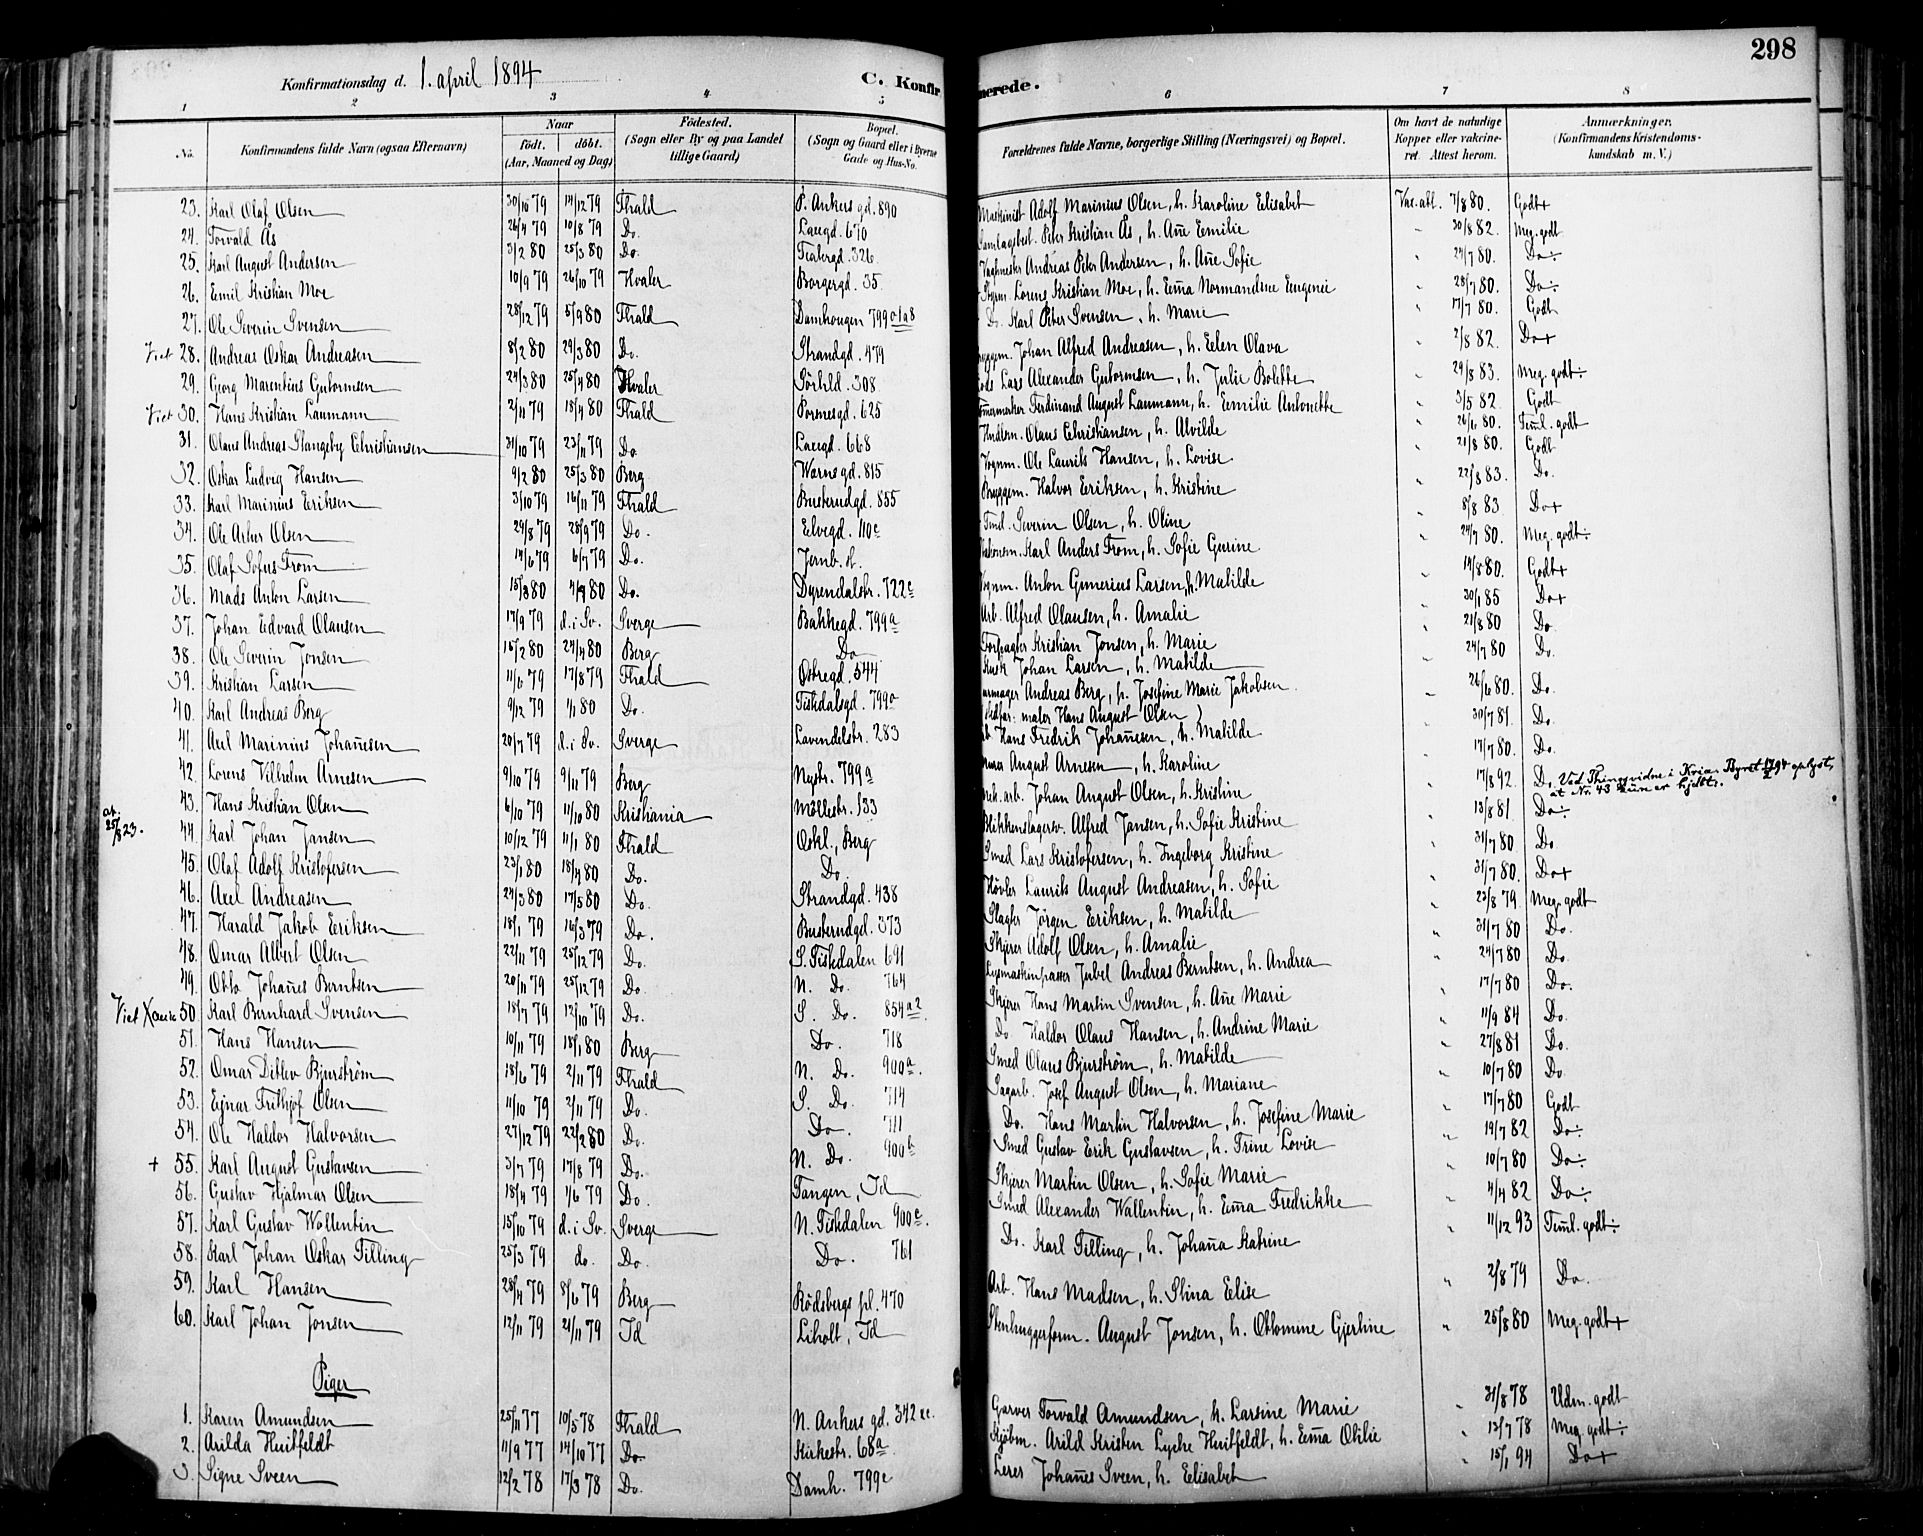 298
Konfirmationsdag d. 1. april 1894
C. Konfirmerede.
1 2 3 4 5 6 7 8
No. Konfirmandens fulde Navn (ogsaa Efternavn) Naar födt. döbt. (Aar, Maaned og Dag) Födested. (Sogn eller By og paa Landet tillige Gaard) Bopæl. (Sogn og Gaard eller i Byerne Gade og Hus-No. Forældrenes fulde Navne, borgerlige Stilling (Næringsvei) og Bopæl. Om havt de naturlige Kopper eller vakcineret. Attest herom. Anmærkninger. (Konfirmandens Kristendomskundskab m. V.)
23. Karl Olaf Olsen 30/10 79 14/12 79 Fhald P. Ankers gd. 890 Maskinist Adolf Marinius Olsen, h. Karoline Elisabet Vac. atl. 7/8 80. Godt+
24. Torvald Ås 26/4 79 10/8 79 Do. Laugd. 670 Peter Kristian Ås, h. Ane Emilie " 30/8 82. Meg. godt
25. Karl August Andersen 31/2 80 25/3 80 Do. Teatergd. 326 Andreas Peter Andersen, h. Ane Sofie " 24/7 80. Do÷
26. Emil Kristian Moe 10/9 79 26/10 79 Hvaler Borgergd. 35 Lorens Kristian Moe, h. Ema Normandine Eugenie " 28/7 80. Do÷
27. Ole Severin Svensen 28/12 79 5/9 80 Fhald Damhaugen 799 Do. Karl Peter Svensen, h. Marie " 17/7 80. Godt
Viet 28. Andreas Oskar Andreasen 8/2 80 29/3 80 Do. Strandgd. 479 Bryggem. Johan Alfred Andreasen, h. Elen Olava " 2/8 82. Do+
29. Georg Marentius Gutormsen 24/3 80 25/4 80 Hvaler Sörhld. 308 Lods Lars Alexander Gutormsen, h. Julie Bolette " 29/8 83. Meg. godt÷
Viet 30. Hans Kristian Laumann 2/11 79 18/4 80 Fhald Pormesgd. 625 Ferdinand August Laumann, h. Emilie Antonette " 3/5 82. Godt
31. Olaus Andreas Stangeby Christiansen 31/10 79 23/11 79 Do. Laugd. 668 Olaus Christiansen, h. Alvilde " 26/6 80. Teml. godt
32. Oskar Ludvig Hansen 9/2 80 25/3 80 Berg Værns gd. 815 Vognm. Ole Laurits Hansen, h. Lovise " 21/8 80. Godt
33. Karl Marinius Eriksen 3/10 79 16/11 79 Fhald Busterudgd. 855 Bryggem. Halvor Eriksen, h. Kristine " 22/8 83. Do.
34. Ole Arthur Olsen 29/8 79 28/9 79 Do. Elvegd. 110c Severin Olsen, h. Oline " 8/8 83 Do+
35. Olaf Sofus From 14/6 79 6/7 79 Do. Jernb. st. Karl Anders From, h. Sofie Gurine " 24/7 80. Meg. godt÷
36. Mads Anton Larsen 15/3 80 4/4 80 Do. Dyrendalstr. 722c Vognm. Anton Gunerius Larsen, h. Matilde " 14/8 80. Godt+
37. Johan Edvard Olausen 17/9 79 d. i Sv. Sverge Bakkegd. 799a Arb. Alfred Olausen, h. Amalie " 30/1 85 Do+
38. Ole Severin Jonsen 15/2 80 24/4 80 Berg Do Forpagter Kristian Jonsen, h. Marie " 21/8 80 Do.
39. Kristian Larsen 11/6 79 17/8 79 Fhald Ostregd. 544 Kusk Johan Larsen, h. Matilde " 24/7 80 Do.
40. Karl Andreas Berg 9/12 79 1/1 80 Do. Tistdalsgd. 799 Andreas Berg, h. Josefine Marie Jakobsen " 26/6 80. Do.
(stedfar: maler Hans August Olsen)
41. Axel Marinius Johañesen 20/7 79 d. i Sv. Sverge Lavendelstr. 283 Arb. Hans Fredrik Johañesen, h. Matilde " 30/7 81. Do.
42. Lorens Vilhelm Arnesen 9/10 79 9/11 79 Berg Nystr. 799a August Arnesen, h. Karoline " 17/7 80. Do.
43. Hans Kristian Olsen 4/10 79 11/10 80 Kristiania Möllestr. 133 Johan August Olsen, h. Kristine " 17/8 92. Do. Ved Thingsvidne i Kria. Byret oplyst, at Nr. 43
at. 25/8 23.
44. Karl Johan Jansen 10/12 79 11/1 80 Fhald Oskl., Berg Blikkenslagersv. Alfred Jansen, h. Sofie Kristine " 13/8 81 Do÷
45. Olaf Adolf Kristofersen 23/1 80 18/4 80 Do. Do. Smed Lars Kristofersen, h. Ingeborg Kristine " 31/7 80 Do
46. Axel Andreasen 24/3 80 17/5 80 Do. Strandgd. 438 Hövler Laurits August Andreasen, h. Sofie " 31/7 80. Do+
47. Harald Jakob Eriksen 18/1 79 16/3 79 Do. Busterudgd. 373 Slagter Jörgen Eriksen, h. Matilde " 23/8 79 Meg. godt
48. Omar Albert Olsen 22/11 79 25/12 79 Do. S. Tistedalen 691 Skjærer Adolf Olsen, h. Amalie " 31/7 80 Do.
49. Otto Johañes Berntsen 20/11 79 25/12 79 Do. N. Do. 764 Lysmaskinpasser Jubel Andreas Berntsen, h. Andrea " 24/7 80 Do.
Viet 50. Karl Bernhard Svensen 18/7 79 12/10 79 Do. S. Do. 854a2 Skjærer Hans Martin Svensen, h. Ane Marie " 17/7 80 Do.
51. Hans Hansen 10/11 79 18/1 80 Berg Do. 718 Do. Haldor Olaus Hansen, h. Andrine Marie " 11/9 84 Do.
52. Omar Ditlev Bjurström 18/6 79 2/11 79 Fhald N. Do. 900a. Smed Olaus Bjurström, h. Matilde " 27/8 81 Do.
53. Ejnar Frithjof Olsen 11/10 79 2/11 79 Do. S. Do. 714 Sagarb. Josef August Olsen, h. Mariane " 10/7 80 Do.
54. Ole Haldor Halvorsen 27/12 79 22/2 80 Do. Do. 711 Do. Hans Martin Halvorsen, h. Josefine Marie " 17/7 80 Godt
+ 55. Karl August Gustavsen 3/7 79 17/8 79 Do. N. Do. 900b Smed Gustav Erik Gustavsen, h. Trine Lovise " 19/7 82 Do÷
56. Gustav Hjalmar Olsen 18/4 79 1/6 79 Do. Tangen, Id Skjærer Martin Olsen, h. Sofie Marie " 10/7 80 Do÷
57. Karl Gustav Wallentin 15/10 79 d. i Sv. Sverge N. Tistedalen 900c. Smed Alexander Wallentin, h. Ema Fredrikke " 4/4 82 Do÷
58. Karl Johan Oskar Tilling 25/3 79 do. Do. Do. 761 Do. Karl Tilling, h. Johaña Katrine " 11/12 93 Teml. godt÷
59. Karl Hansen 28/4 79 8/6 79 Berg Rödsbergs pl. 470 Arb. Hans Madsen, h. Stina Elise " 2/8 79 Do.
60. Karl Johan Jonsen 12/11 79 21/11 79 Id Liholt, Id Stenhuggerform. August Jonsen, h. Ottomine Gjertine " 25/8 80 Meg. godt+
Piger
1. Karen Amundsen 25/11 77 10/5 78 Fhald N. Ankers gd. 342 Garver Torvald Amundsen, h. Larsine Marie " 31/8 78 Udm. godt
2. Arilda Huitfeldt 11/9 77 14/10 77 Do. Kirkestr. 68a Kjöbm. Arild Kristen Lycke Huitfeldt, h. Ema Otilie " 13/7 78 Meg. godt÷
3. Signe Sveen 12/2 78 17/3 78 Do. Damh. 799c Lærer Johañes Sveen, h. Elisabet " 15/1 94 Do+